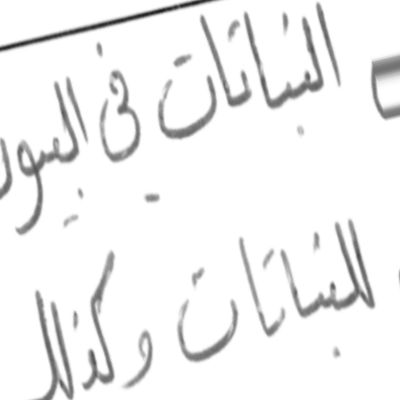 النباتات في البيو
للنباتات وكذلك